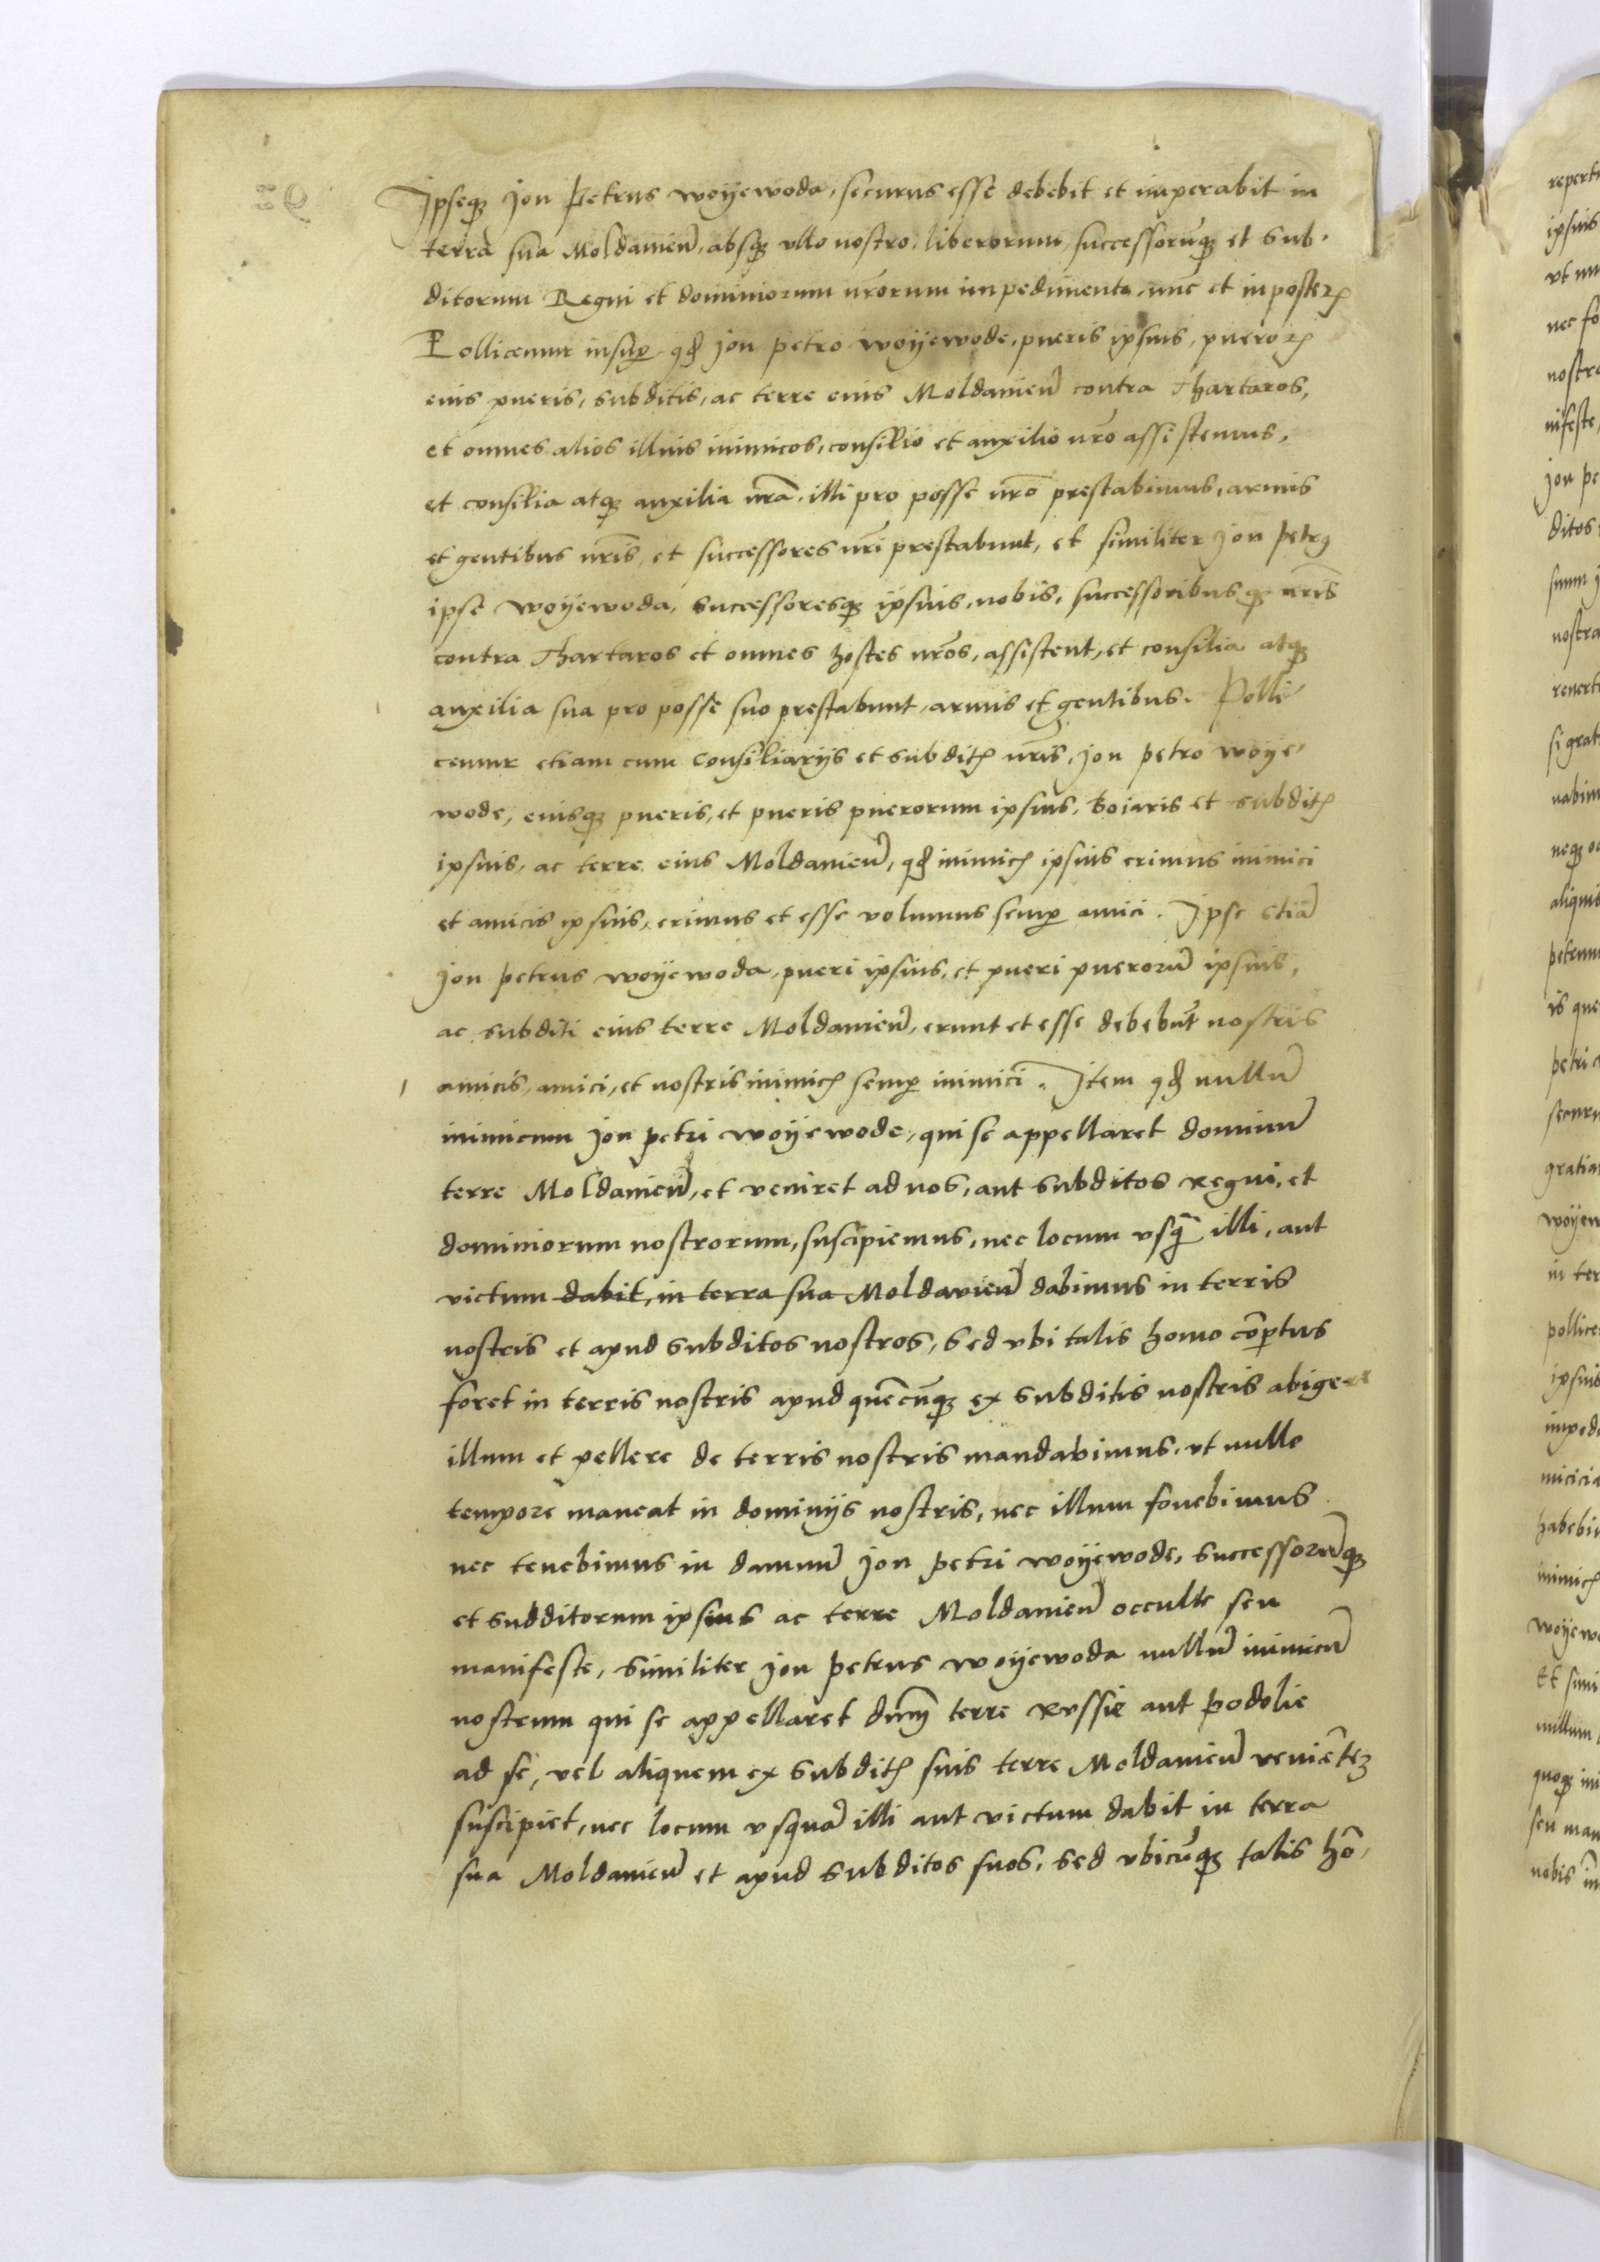 Ipseq3 Jon Petrus woyewoda, securus esse debebit et imperabit in
terra sua Moldauieñ, absq3 vllo nostro, liberorum, successorūq3 et sub-
ditorum Regni et dominiorum nr̃orum impedimento, nunc et in posteꝝ
Pollicemur insuꝑ qđ Jon Petro woyewode, pueris ipsius, pueroꝝ
eius pueris, subditis, ac terre eius Moldauieñ contra Thartaros,
et omnes alios illius inimicos, consilio et auxilio nr̃o assistemus,
et consilia atq3 auxilia nr̃a illi pro posse nr̃o prestabimus, armis
et gentibus nr̃is, et successores nr̃i prestabunt, et similiter Jon Petrꝯ
ipse woyewoda, successoresq3 ipsius, nobis, successoribusq3 nr̃is
contra Thartaros et omnes hostes nr̃os, assistent, et consilia atq3
auxilia sua pro posse suo prestabunt, armis et gentibus. Polli-
cemur etiam cum Consiliarijs et subditꝭ nr̃is, Jon Petro woye-
wode, eiusq3 pueris, et pueris puerorum ipsius, Boiaris et subditꝭ
ipsius, ac terre eius Moldauieñ, qđ inimicꝭ ipsius erimus inimici
et amicis ipsius, erimus et esse volumus semꝑ amici. Ipse etiā
Jon Petrus woyewoda, pueri ipsius, et pueri puerorū ipsius,
ac subditi eius terre Moldauieñ, erunt et esse debebūt nostris
amicis, amici, et nostris inimicꝭ semꝑ inimici. Item qđ nullū
inimicum Jon Petri woyewode, qui se appellaret dominū
terre Moldauieñ, et veniret ad nos, aut subditos Regni, et
dominiorum nostrorum, suscipiemus, nec locum vsq̃ illi, aut
victum dabit, in terra sua Moldauieñ dabimus in terris
nostris et apud subditos nostros, sed vbi talis homo cōptus
foret in terris nostris apud quēcūq3 ex subditis nostris abigere
illum et pellere de terris nostris mandabimus, vt nullo
tempore maneat in dominijs nostris, nec illum fouebimus
nec tenebimus in damnū Jon Petri woyewode, successorūq3
et subditorum ipsius ac terre Moldauieñ occulte seu
manifeste, similiter Jon Petrus woyewoda nullū inimicū
nostrum qui se appellaret dnm̃ terre Russie aut Podolie
ad se, vel aliquem ex subditꝭ suis terre Moldauieñ veniētē
suscipiet, nec locum vsquā illi aut victum dabit in terra
sua Moldauieñ et apud subditos suos, sed vbicūq3 talis hō,